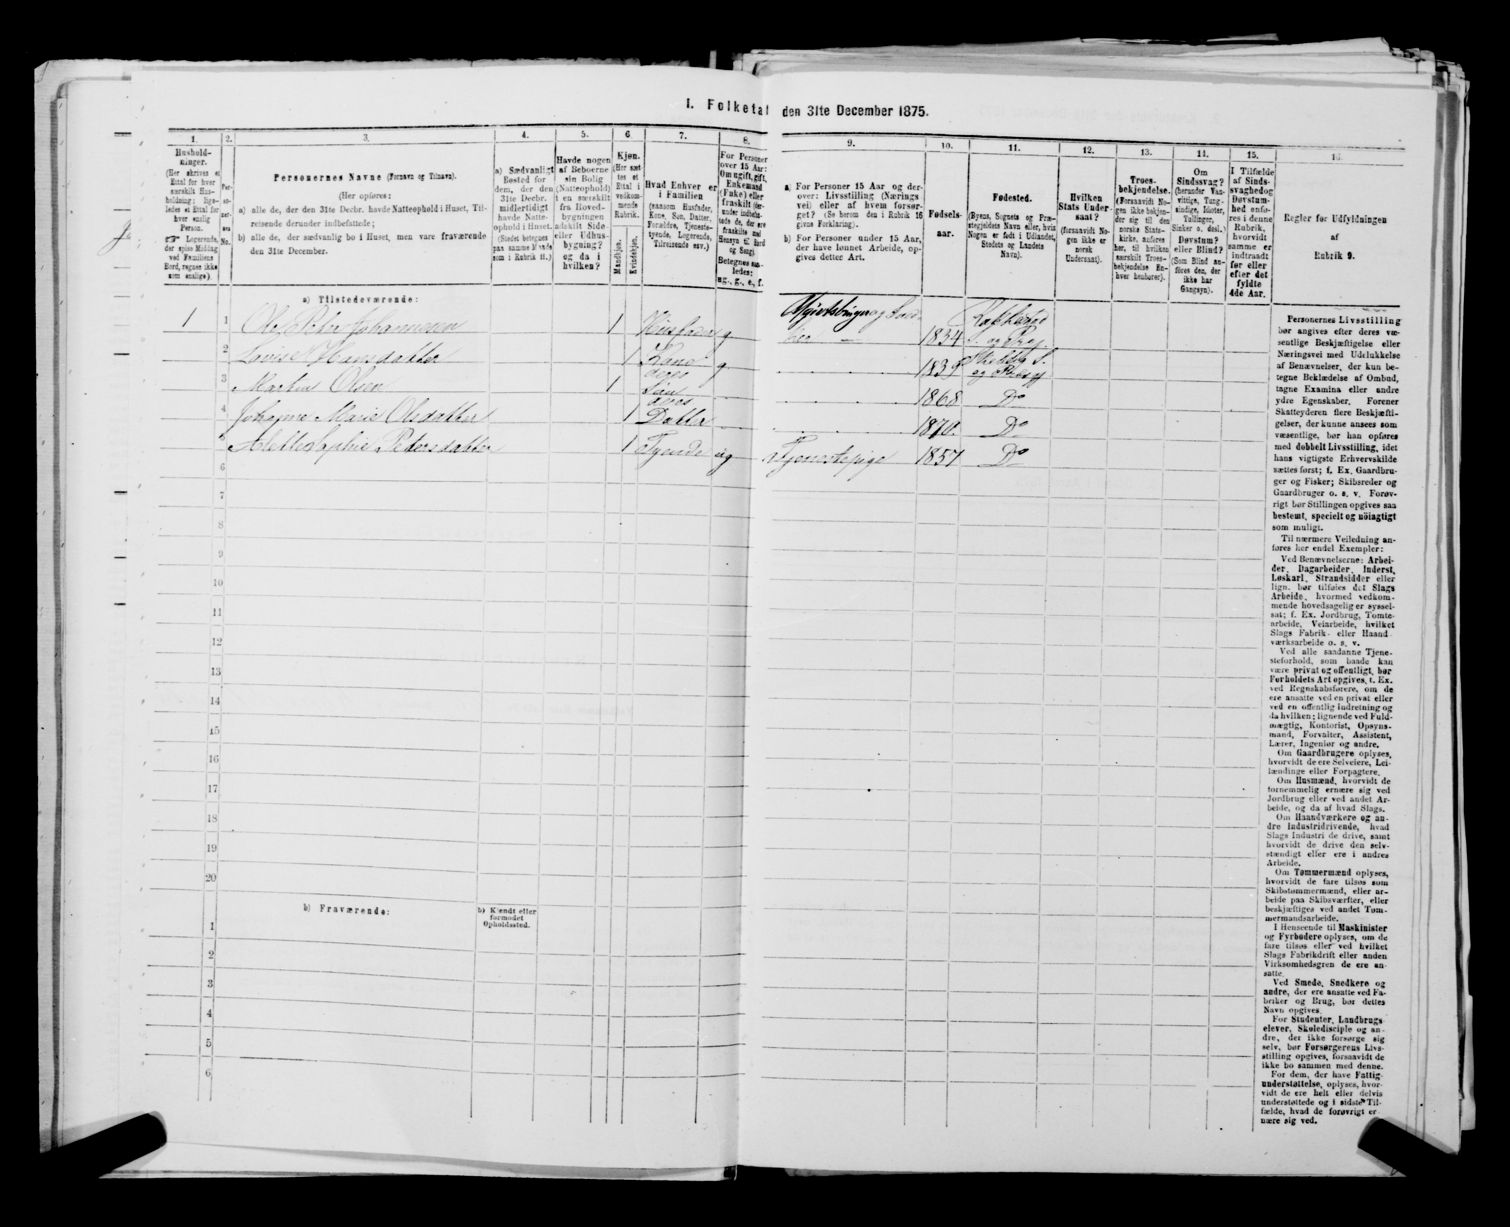 I. Folketa den 31te December 1875.
1.
Hushold-
ninger.
(Her skrives et
Ettal for hver
særskilt Hus-
holdning; lige-
ledes et Ettal for
hver enslig
Person.
☞ Logerende,
der spise Middag
ved Familiens
Bord, regnes ikke
som enslige.)
2.
Per-
so-
ner-
nes
No.
3.
Personernes Navne (Fornavn og Tilnavn).
(Her opføres:
a) alle de, der den 31te Decbr. havde Natteophold i Huset, Til-
reisende derunder indbefattede;
b) alle de, der sædvanlig bo i Huset, men vare fraværende
den 31te December.
4.
a) Sædvanligt
Bosted for
dem, der den
31te Decbr.
midlertidigt
havde Natte-
ophold i Huset.
(Stedet betegnes
paa samme Maade
som i Rubrik 11.)
5.
Havde nogen
af Beboerne
sin Bolig
(Natteophold)
i en særskilt
fra Hoved-
bygningen
adskilt Side-
eller Udhus-
bygning?
og da i
hvilken?
6
Kjøn.
(Her sæt-
tes et
Ettal i
vedkom-
mende
Rubrik.
Mandkjøn.
Kvindekjøn.
7.
Hvad Enhver er
i Familien
(saasom Husfader,
Kone, Søn, Datter,
Forældre, Tjeneste-
tyende, Logerende,
Tilreisende osv.)
8.
For Personer
over 15 Aar:
Om ugift, gift,
Enkemand
(Enke) eller
fraskilt
Betegnes saa-
ledes:
ug., g., e, f.
9.
a) For Personer 15 Aar og der-
over: Livsstilling (Nærings
vei) eller af hvem forsør-
get? (Se herom den i Rubrik 16
givne Forklaring).
b) For Personer under 15 Aar,
der have lønnet Arbeide, op-
gives dettes Art.
10.
Fødsels-
aar.
11.
Fødested.
(Byens, Sognets og Præ-
stegjeldets Navn eller, hvis
Nogen er født i Udlandet,
Stedets og Landets
Navn).
12.
Hvilken
Stats Under-
saat?
(forsaavidt No-
gen ikke er
norsk
Undersaat).
13.
Troes-
bekjendelse.
(Forsaavidt No-
gen ikke bekjen-
der sig til den
norske Stats-
kirke, anføres
her, til hvilken
særskilt Troes-
bekjendelse En-
hver henhører).
14.
Om
Sindssvag?
(herunder Van-
vittige, Tung-
sindige, Idioter,
Tullinger,
Sinker o. desl.)
Døvstum?
eller Blind?
(Som Blind an-
føres den, der
ikke har
Gangsyn).
15.
I Tilfælde
af Sinds-
svaghed og
Døvstum-
hed enfø-
res i denne
Rubrik,
hvorvidt
samme er
indtraadt
før eller
efter det
fyldte
4de Aar.
16.
Regler for Udfyldningen
af
Rubrik 9.
a) Tilstedeværende:
1 1 Ole Peter Johannesen 1 Husfader g 1834
2 Lovise Hansdatter 1 Kone g 1839
3 Martin Olsen 1 Søn 1868 Do
4 Johanne Marie Olsdatter 1 Datter 1870 Do
5 Alette Sophie Pedersdatter 1 Tyende ug Tjenestepige 1857 Do
6
7
8
9
10
11
12
13
14
15
16
17
18
19
20
b) Fraværende:
b) Kjendt eller
formodet
Opholdssted.
1
2
3
4
5
6
Personernes Livsstilling
bør angives efter deres væ-
sentlige Beskjæftigelse eller
Næringsvei med Udelukkelse
af Benævnelser, der kun be-
tegne Beklædelse af Ombud,
tagne Examina eller andre
ydre Egenskaber. Forener
Skatteyderen flere Beskjæfti-
gelser, der kunne ansees som
væsentlige, bør han opføres
med dobbelt Livsstilling, idet
hans vigtigste Erhvervskilde
sættes først; f. Ex. Gaardbru-
ger og Fisker; Skibsreder og
Gaardbruger o. s. v. Forøv-
rigt bør Stillingen opgives saa
bestemt, specielt og nöiagtigt
som muligt.
Til nærmere Veiledning an-
føres her endel Exempler:
Ved Benævnelserne: Arbei-
der, Dagarbeider, Inderst,
Løskarl, Strandsidder eller
lign. bør tilføies det Slags
Arbeide, hvormed vedkom-
mende hovedsagelig er syssel-
sat; f. Ex. Jordbrug, Tomte-
arbeide, Veiarbeide, hvilket
Slags Fabrik- eller Haand
værksarbeide o. s. v.
Ved alle saadanne Tjene-
steforhold, som baade kan
være privat og offentligt, bør
Forholdets Art opgives, f. Ex.
ved Regnskabsførere, om de
ere ansatte ved en privat eller
ved en offentlig Indretning og
da hvilken; lignende ved Fuld-
mægtig, Kontorist, Opsyns-
mand, Forvalter, Assistent,
Lærer, Ingeniør og andre.
Om Gaardbrugere oplyses,
hvorvidt de ere Selveiere, Lei-
lændinge eller Forpagtere.
Om Husmænd, hvorvidt de
fornemmelig ernære sig ved
Jordbrug eller ved andet Ar-
beide, og da af hvad Slags.
Om Haandværkere og an-
dre Industridrivende, hvad
Slags Industri de drive, samt
hvorvidt de drive den selv-
stændigt eller ere i andres
Arbeide.
Om Tømmermænd oplyses,
hvorvidt de fare tilsøs som
Skibstømmermænd, eller ar-
beide paa Skibsværfter, eller
beskjæftiges ved andet Tøm-
mermandsarbeide.
I Henseende til Maskinister
og Fyrbødere oplyses, om de
fare tilsøs eller ved hvilket
Slags Fabrikdrift eller anden
Virksomhedsgren de ere an-
satte.
Ved Smede, Snedkere og
andre, der ere ansatte ved Fa-
briker og Brug, bør dettes
Navn opgives.
For Studenter, Landbrugs
elever, Skoledisciple og an-
dre, der ikke forsørge sig
selv, bør Forsørgerens Livs-
stilling opgives, forsaavidt de
ikke bo sammen med denne.
For dem, der have Fattig
understøttelse, oplyses, hvor-
vidt de ere helt eller delvis
understøttede og i sidste Til-
fælde, hvad de forøvrigt er
nære sig ved.